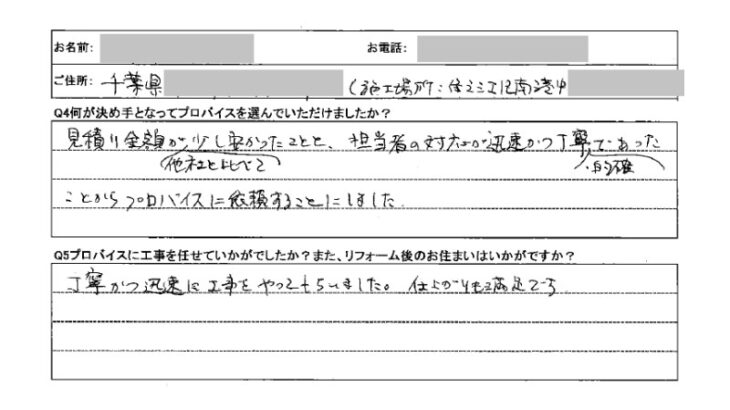 お名前: お電話:
ご住所: 千葉県 (施工場所:住之江区南港中
Q4何が決め手となってプロバイスを選んでいただけましたか?
見積り金額が少し安かったことと、担当者の対応が迅速かつ丁寧であった
(他社と比べて ・的確
ことからプロバイスに依頼することにしました.
Q5プロバイスに工事を任せていかがでしたか?また、リフォーム後のお住まいはいかがですか?
丁寧かつ迅速に工事をやってもらいました。仕上がりも満足です